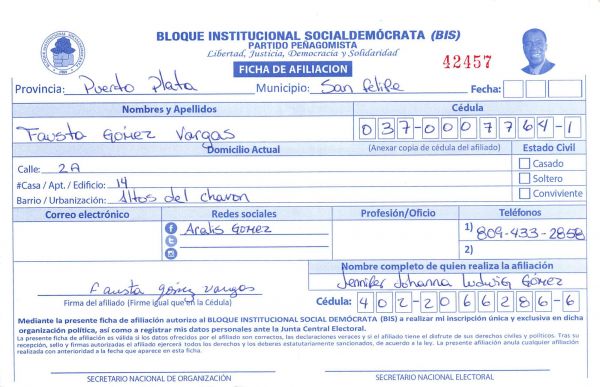 BLOQUE INSTITUCIONAL SOCIALDEMÓCRATA (BIS)
PARTIDO PEÑAGOMISTA
Libertad, Justicia, Democracia y Solidaridad
42457
FICHA DE AFILIACION
Provincia: Puerto Plata Municipio: San Felipe Fecha:
Nombres y Apellidos Cédula
Fausta Gómez Vargas 037-0007764-1
Domicilio Actual (Anexar copia de cédula del afiliado) Estado Civil
Calle: 2A Casado
#Casa / Apt. / Edificio: 14 Soltero
Barrio / Urbanización: Altos del chavon Conviviente
Correo electrónico Redes sociales Profesión/Oficio Teléfonos
Aralis Gomez 1) 809-433-2858
2)
Nombre completo de quien realiza la afiliación
Fausta gómez vargas Jennifer Johanna Ludwig Gómez
Firma del afiliado (Firme igual que en la Cédula) Cédula: 402-2066286-6
Mediante la presente ficha de afiliación autorizo al BLOQUE INSTITUCIONAL SOCIAL DEMÓCRATA (BIS) a realizar mi inscripción única y exclusiva en dicha
organización política, así como a registrar mis datos personales ante la Junta Central Electoral.
La presente ficha de afiliación es válida si los datos ofrecidos por el afiliado son correctos, las declaraciones veraces y si el afiliado tiene el disfrute de sus derechos civiles y políticos. Tras su
recepción, sello y firmas autorizadas el afiliado ejercerá todos los derechos y los deberes estatutariamente sancionados, de acuerdo a la ley. La presente afiliación anula cualquier afiliación
realizada con anterioridad a la fecha que aparece en esta ficha.
SECRETARIO NACIONAL DE ORGANIZACIÓN SECRETARIO NACIONAL ELECTORAL